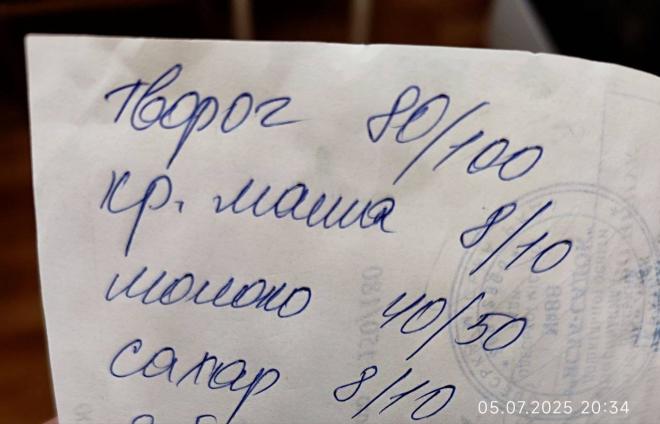 творог 80/100
кр. манка 8/10
молоко 40/50
сахар 8/10
150/180
05.07.2025 20:34